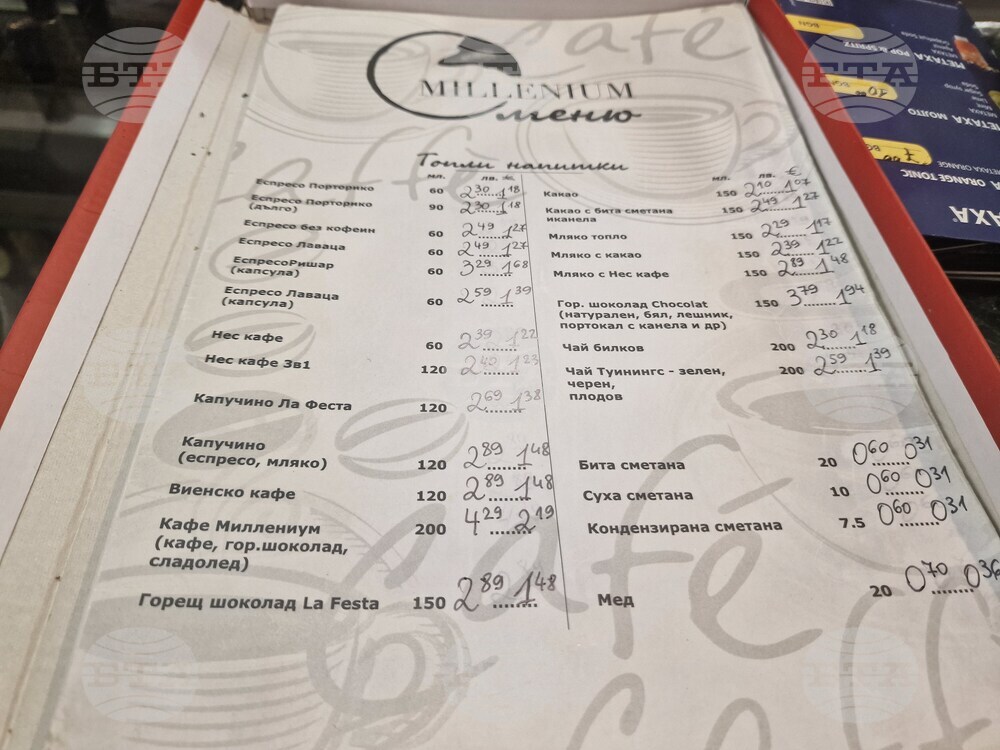 MILLENIUM
меню
Топли напитки
мл. лв. €
Еспресо Порторико 60 2 30 1 18
Еспресо Порторико 90 2 30 1 18
(дълго)
Еспресо без кофеин 60 2 49 1 27
Еспресо Лаваца 60 2 49 1 27
ЕспресоРишар 60 3 29 1 68
(капсула)
Еспресо Лаваца 60 2 59 1 39
(капсула)
Нес кафе 60 2 39 1 22
Нес кафе 3в1 120 2 40 1 23
Капучино Ла Феста 120 2 69 1 38
Капучино
(еспресо, мляко) 120 2 89 1 48
Виенско кафе 120 2 89 1 48
Кафе Миллениум 200 4 29 2 19
(кафе, гор.шоколад,
сладолед)
Горещ шоколад La Festa 150 2 89 1 48
мл. лв. €
Какао 150 2 10 1 07
Какао с бита сметана 150 2 49 1 27
иканела
Мляко топло 150 2 29 1 17
Мляко с какао 150 2 39 1 22
Мляко с Нес кафе 150 2 89 1 48
Гор. шоколад Chocolat 150 3 79 1 94
(натурален, бял, лешник,
портокал с канела и др)
Чай билков 200 2 30 1 18
Чай Туинингс - зелен, 200 2 59 1 39
черен,
плодов
Бита сметана 20 0 60 0 31
Суха сметана 10 0 60 0 31
Кондензирана сметана 7.5 0 60 0 31
Мед 20 0 70 0 36
METAXA POP & SPRITZ
METAXA МОЈИТО
METAXA ORANGE
ORANGE TONIC
БТА
БТА